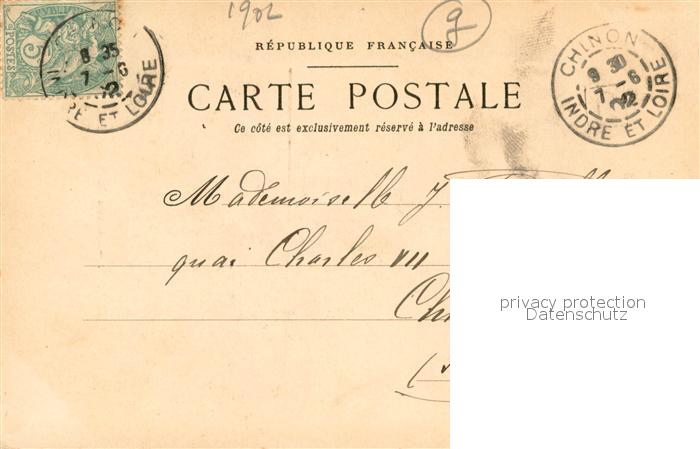 1902
9
RÉPUBLIQUE FRANÇAISE
CARTE POSTALE
Ce côté est exclusivement réservé à l'adresse
POSTES
8 35
7 -6
2
RE ET LOIRE
CHINON
9 30
7 -6
02
INDRE ET LOIRE
Mademoiselle J.
quai Charles VII
Ch
privacy protection
Datenschutz